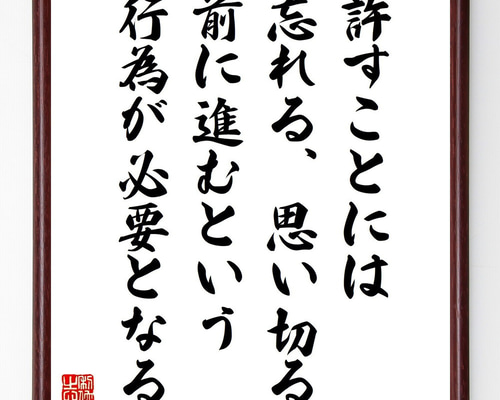 許すことには
忘れる、思い切る
前に進むという
行為が必要となる